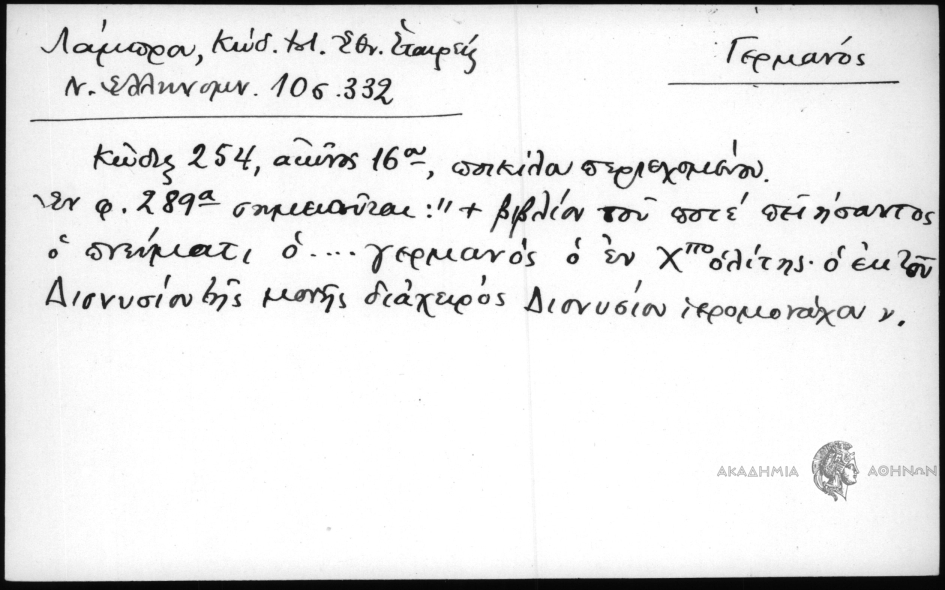 Λάμπρου, Κώδ. Ἱστ. Ἐθν. Ἑταιρείας
Ν. Ἑλληνομν. 10 σ. 332
Γερμανός
Κῶδιξ 254, αἰῶνος 16ου, ποικίλου περιεχομένου.
Ἐν φ. 289α σημειοῦται: "+ βιβλίον τοῦ ποτέ πεῖησαντος
ὁ πνεύματι ὁ .... γερμανός ὁ ἐν Χπολίτης· ὁ ἐκ τοῦ
Διονυσίου τῆς μονῆς διάχειρός Διονυσίου ἱερομονάχου ν.
ΑΚΑΔΗΜΙΑ ΑΘΗΝΩΝ